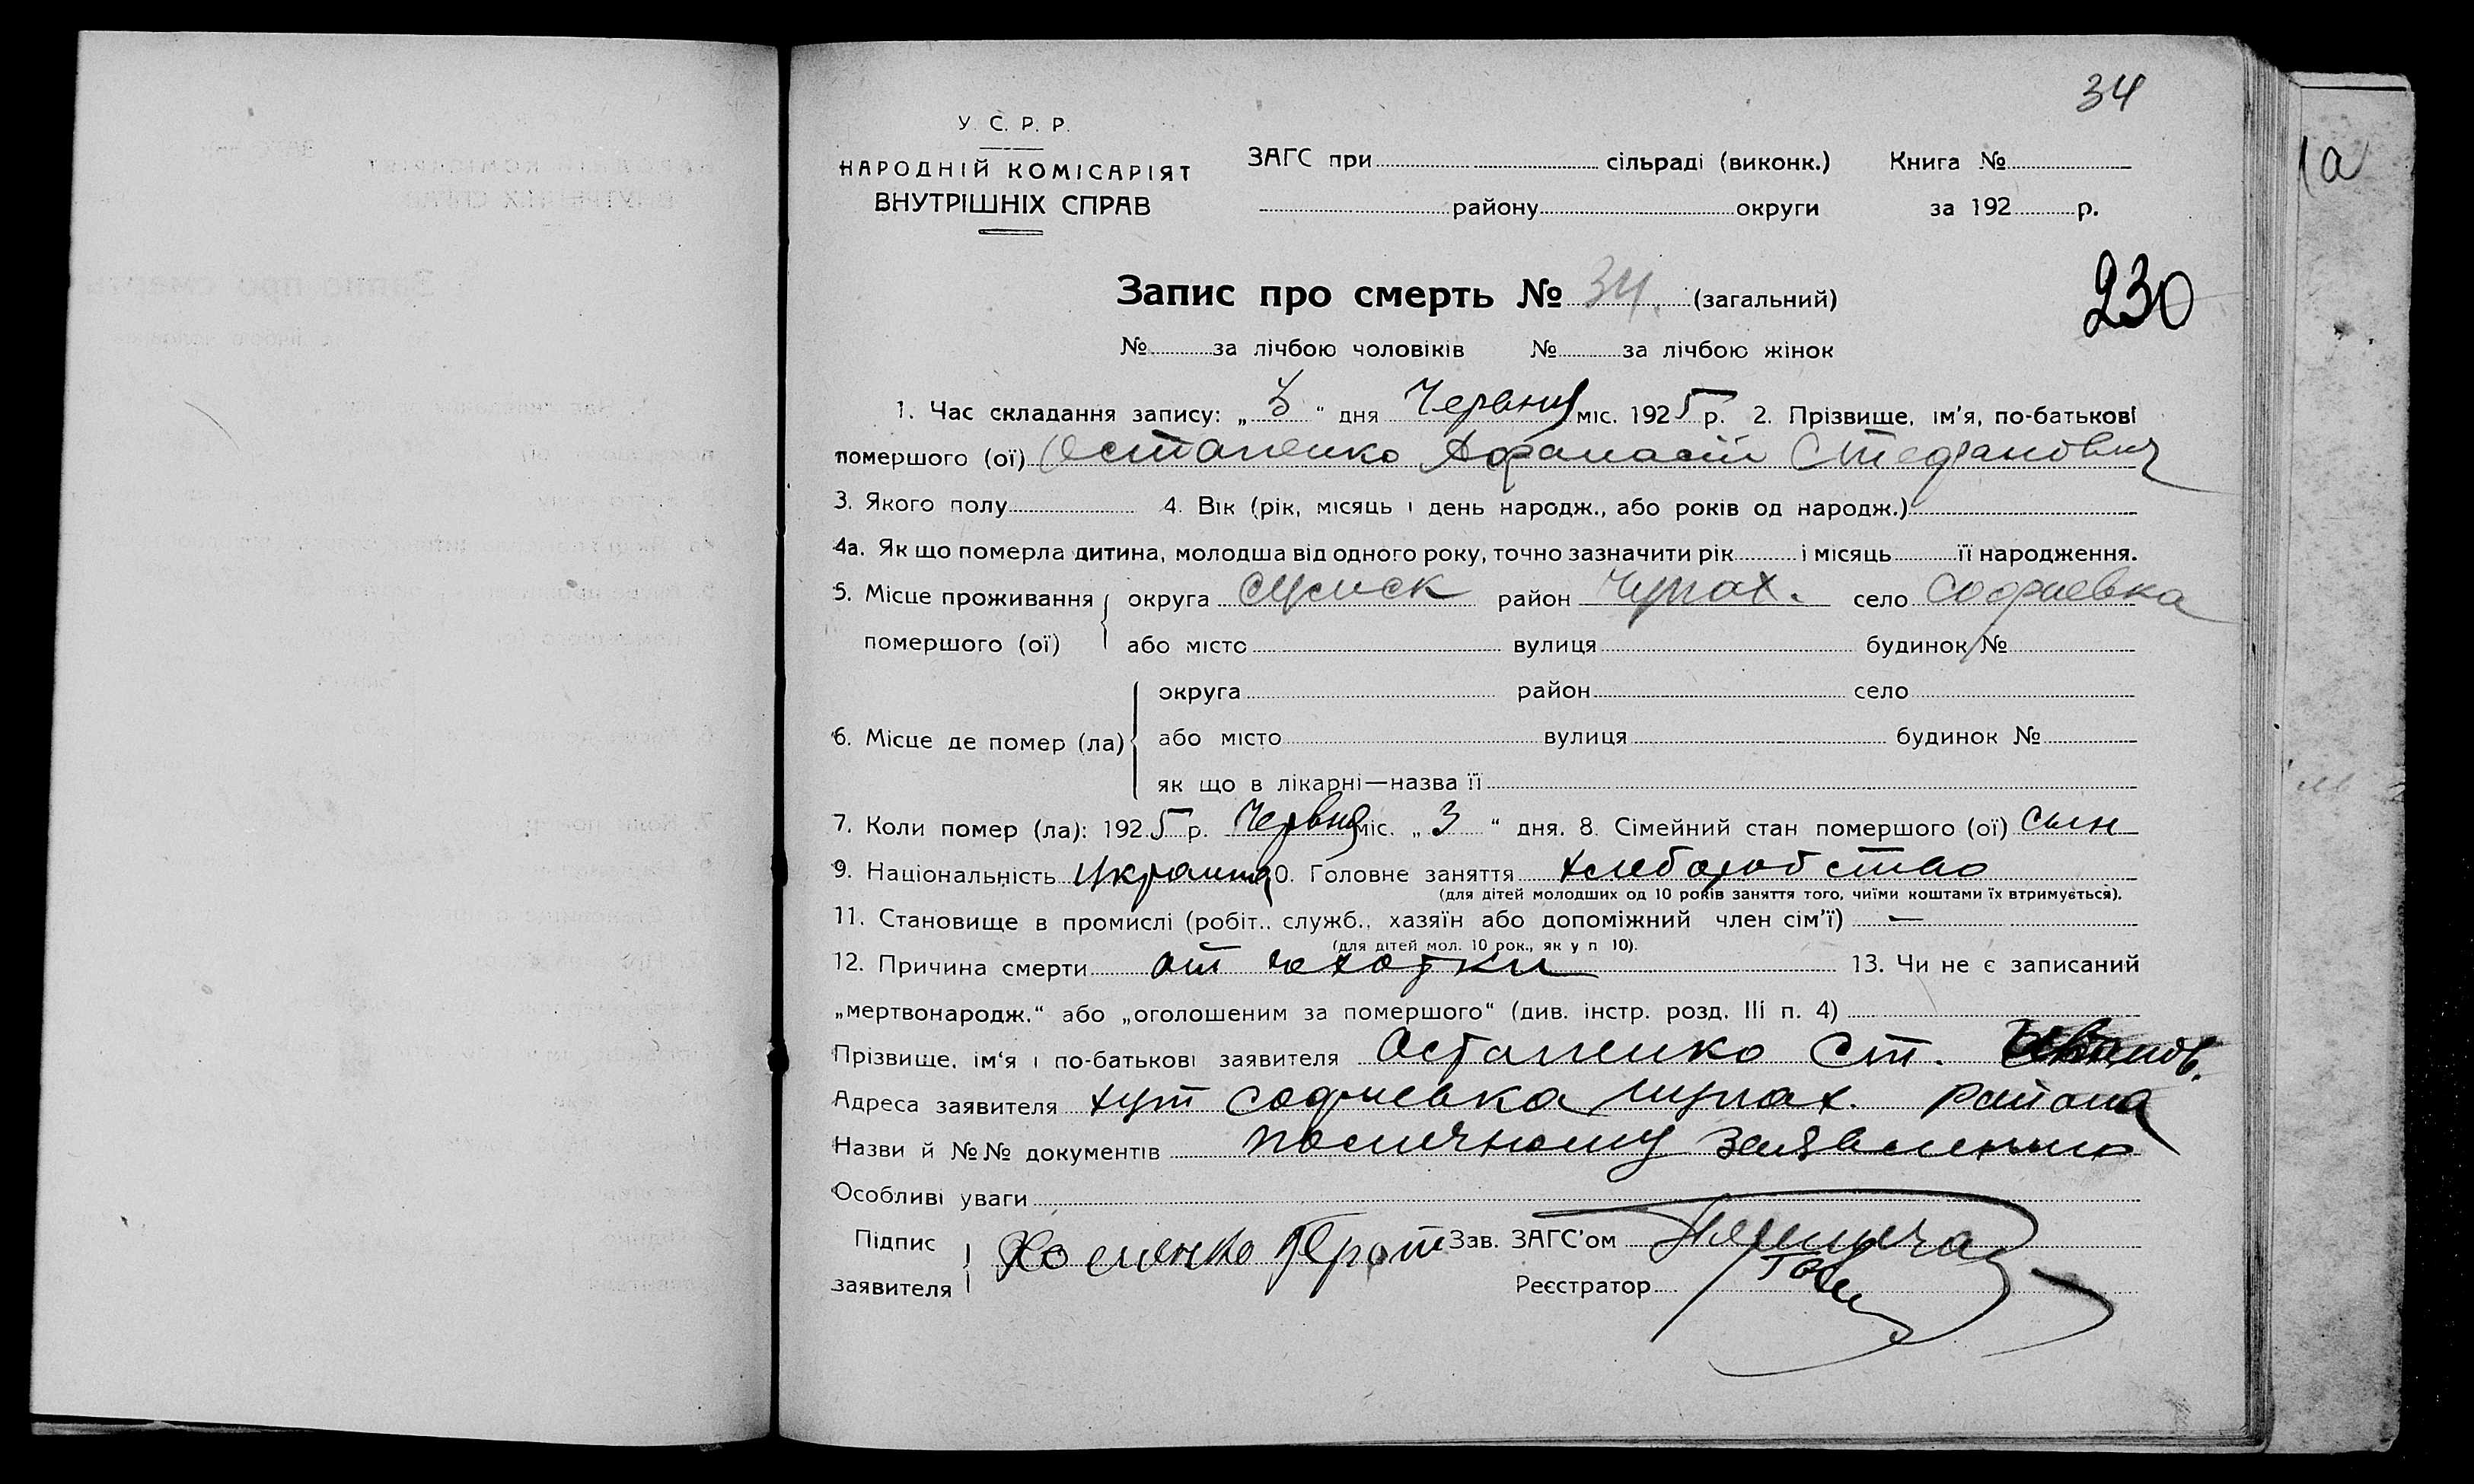 34
У. С. Р. Р.
НАРОДНІЙ КОМІСАРІЯТ
ВНУТРІШНІХ СПРАВ
ЗАГС при сільраді (виконк.) Книга №
району округи за 192 р.
1а
Запис про смерть № 34. (загальний)
230
№ за лічбою чоловіків № за лічбою жінок
1. Час складання запису: „ 3 “ дня Червня міс. 1925 р. 2. Прізвище, ім'я, по-батькові
помершого (ої) Остапенко Афанасий Стефанович
3. Якого полу 4. Вік (рік, місяць і день народж., або років од народж.)
4а. Як що померла дитина, молодша від одного року, точно зазначити рік і місяць її народження.
5. Місце проживання помершого (ої) округа Сумск район Чупах. село Софиевка
або місто вулиця будинок №
6. Місце де помер (ла) округа район село
або місто вулиця будинок №
як що в лікарні—назва її
7. Коли помер (ла): 1925 р. Червня міс. „ 3 “ дня. 8. Сімейний стан помершого (ої) сын
9. Національність Украинц 10. Головне заняття хлеборобство
(для дітей молодших од 10 років заняття того, чиїми коштами їх втримується).
11. Становище в промислі (робіт., служб., хазяїн або допоміжний член сім'ї) —
(для дітей мол. 10 рок., як у п 10).
12. Причина смерти от чехотки 13. Чи не є записаний
„мертвонародж.“ або „оголошеним за помершого“ (див. інстр. розд. III п. 4)
Прізвище, ім'я і по-батькові заявителя Остапенко Ст. Иванов.
Адреса заявителя хут Софиевка Чупах. района
Назви й №№ документів по личному заявлению
Особливі уваги
Підпис заявителя
Зав. ЗАГС'ом
Реєстратор